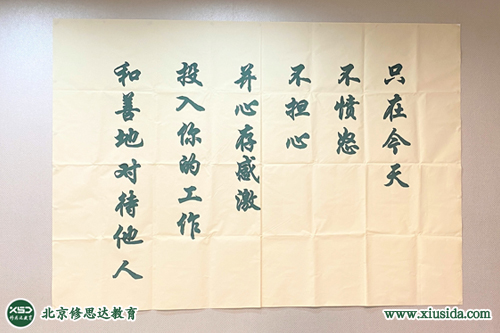 只在今天
不愤怒
不担心
并心存感激
投入你的工作
和善地对待他人
XSD
修思达教育
北京修思达教育
www.xiusida.com